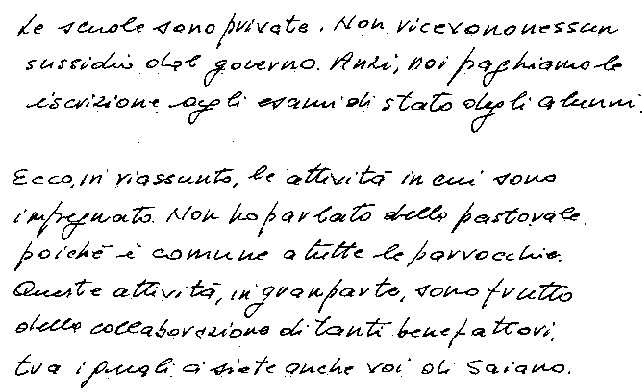 Le scuole sono private. Non ricevono nessun
sussidio dal governo. Anzi, noi paghiamo le
iscrizione agli esami di stato degli alunni.
Ecco, in riassunto, le attività in cui sono
impegnato. Non ho parlato della pastorale
poiché è comune a tutte le parrocchie.
Queste attività, in gran parte, sono frutto
della collaborazione di tanti benefattori,
tra i quali ci siete anche voi di Saiano.